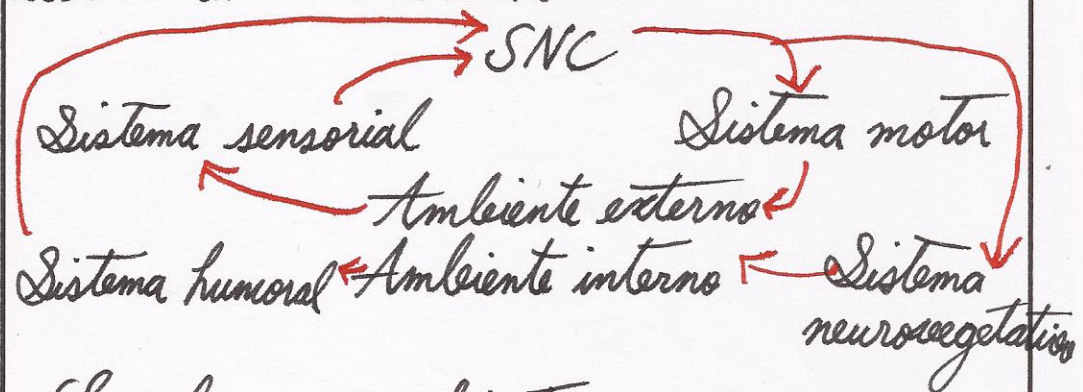 SNC
Sistema sensorial Sistema motor
Ambiente externo
Sistema humoral Ambiente interno Sistema
neurovegetativo